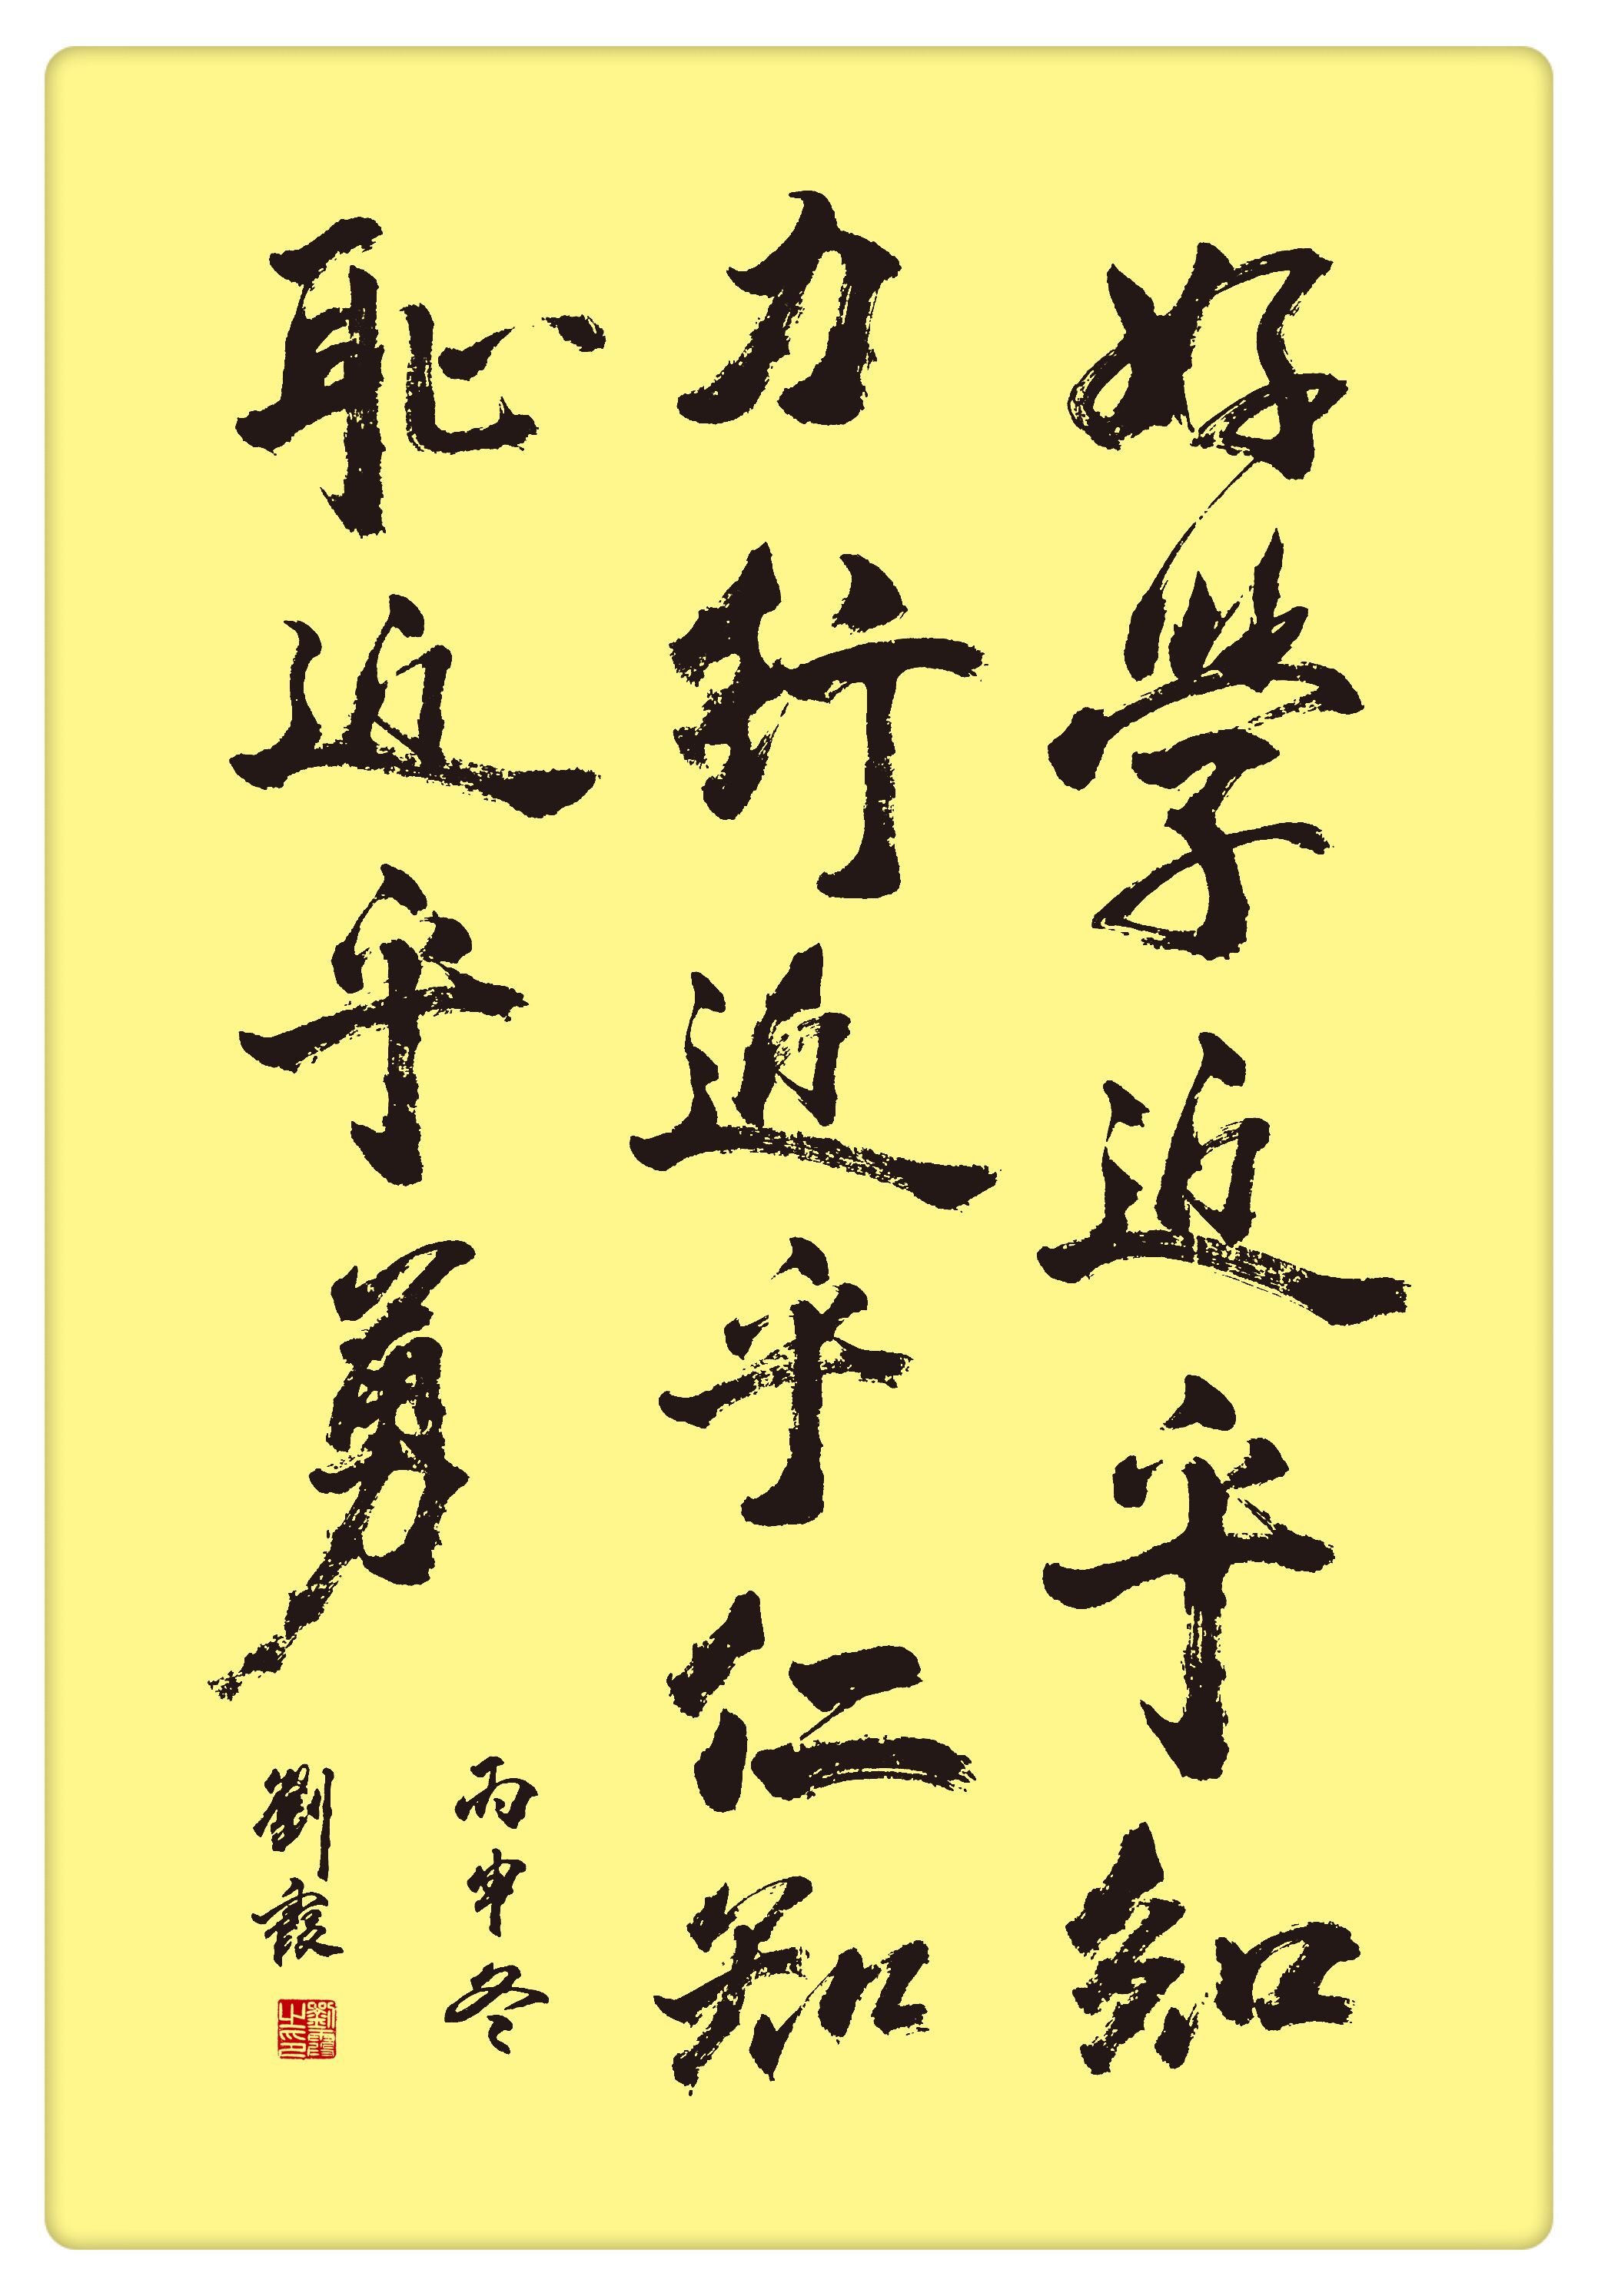 好學近乎知
力行近乎仁知
恥近乎勇
丙申冬
劉霞
劉霞之印